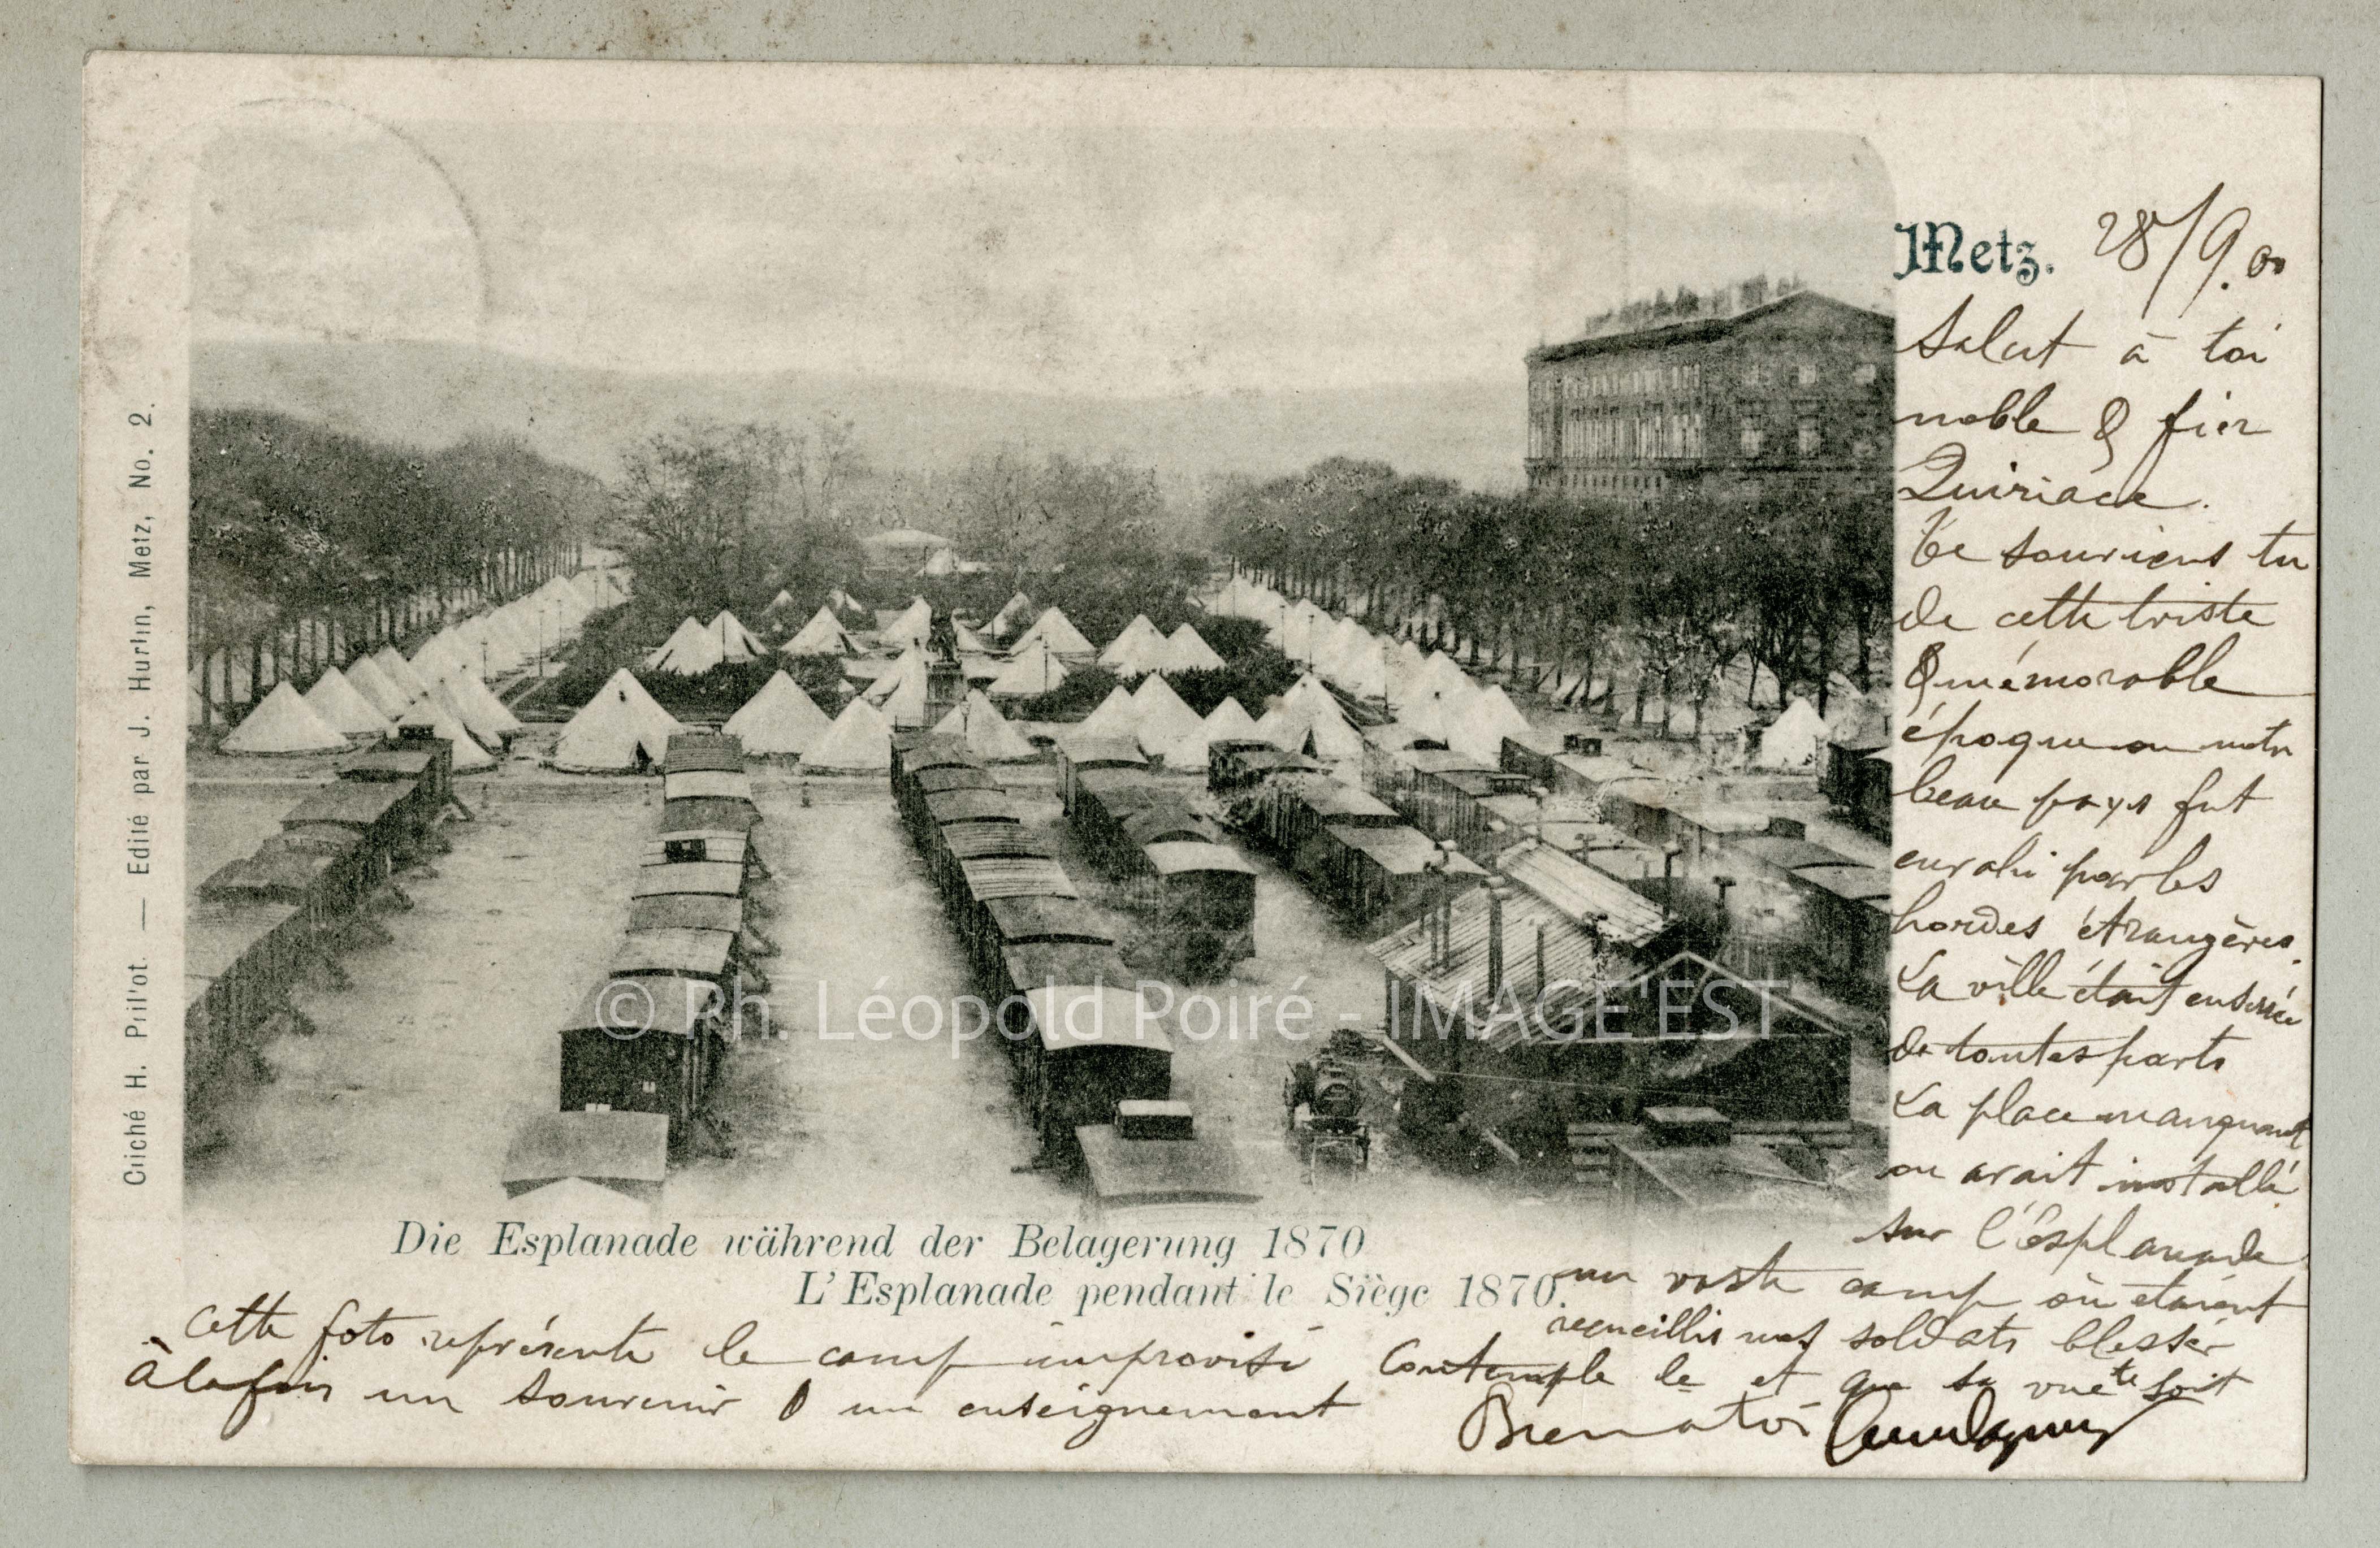 Metz. 28/9.00
Salut à toi
noble & fier
Quiriace.
Te souviens tu
de cette triste
& mémorable
époque ou notre
beau pays fut
envahi par les
hordes étrangères.
La ville était enserrée
de toutes parts
La place manquant
on avait installé
sur l'Esplanade
un vaste camp où étaient
recueillis nos soldats blessés
Cette foto représente le camp improvisé Contemple le et que sa vue te soit
à la fois un souvenir & un enseignement
Die Esplanade während der Belagerung 1870
L'Esplanade pendant le Siège 1870.
Cliché H. Prillot. — Edité par J. Hurlin, Metz, No. 2.
© Ph. Léopold Poiré - IMAGE'EST